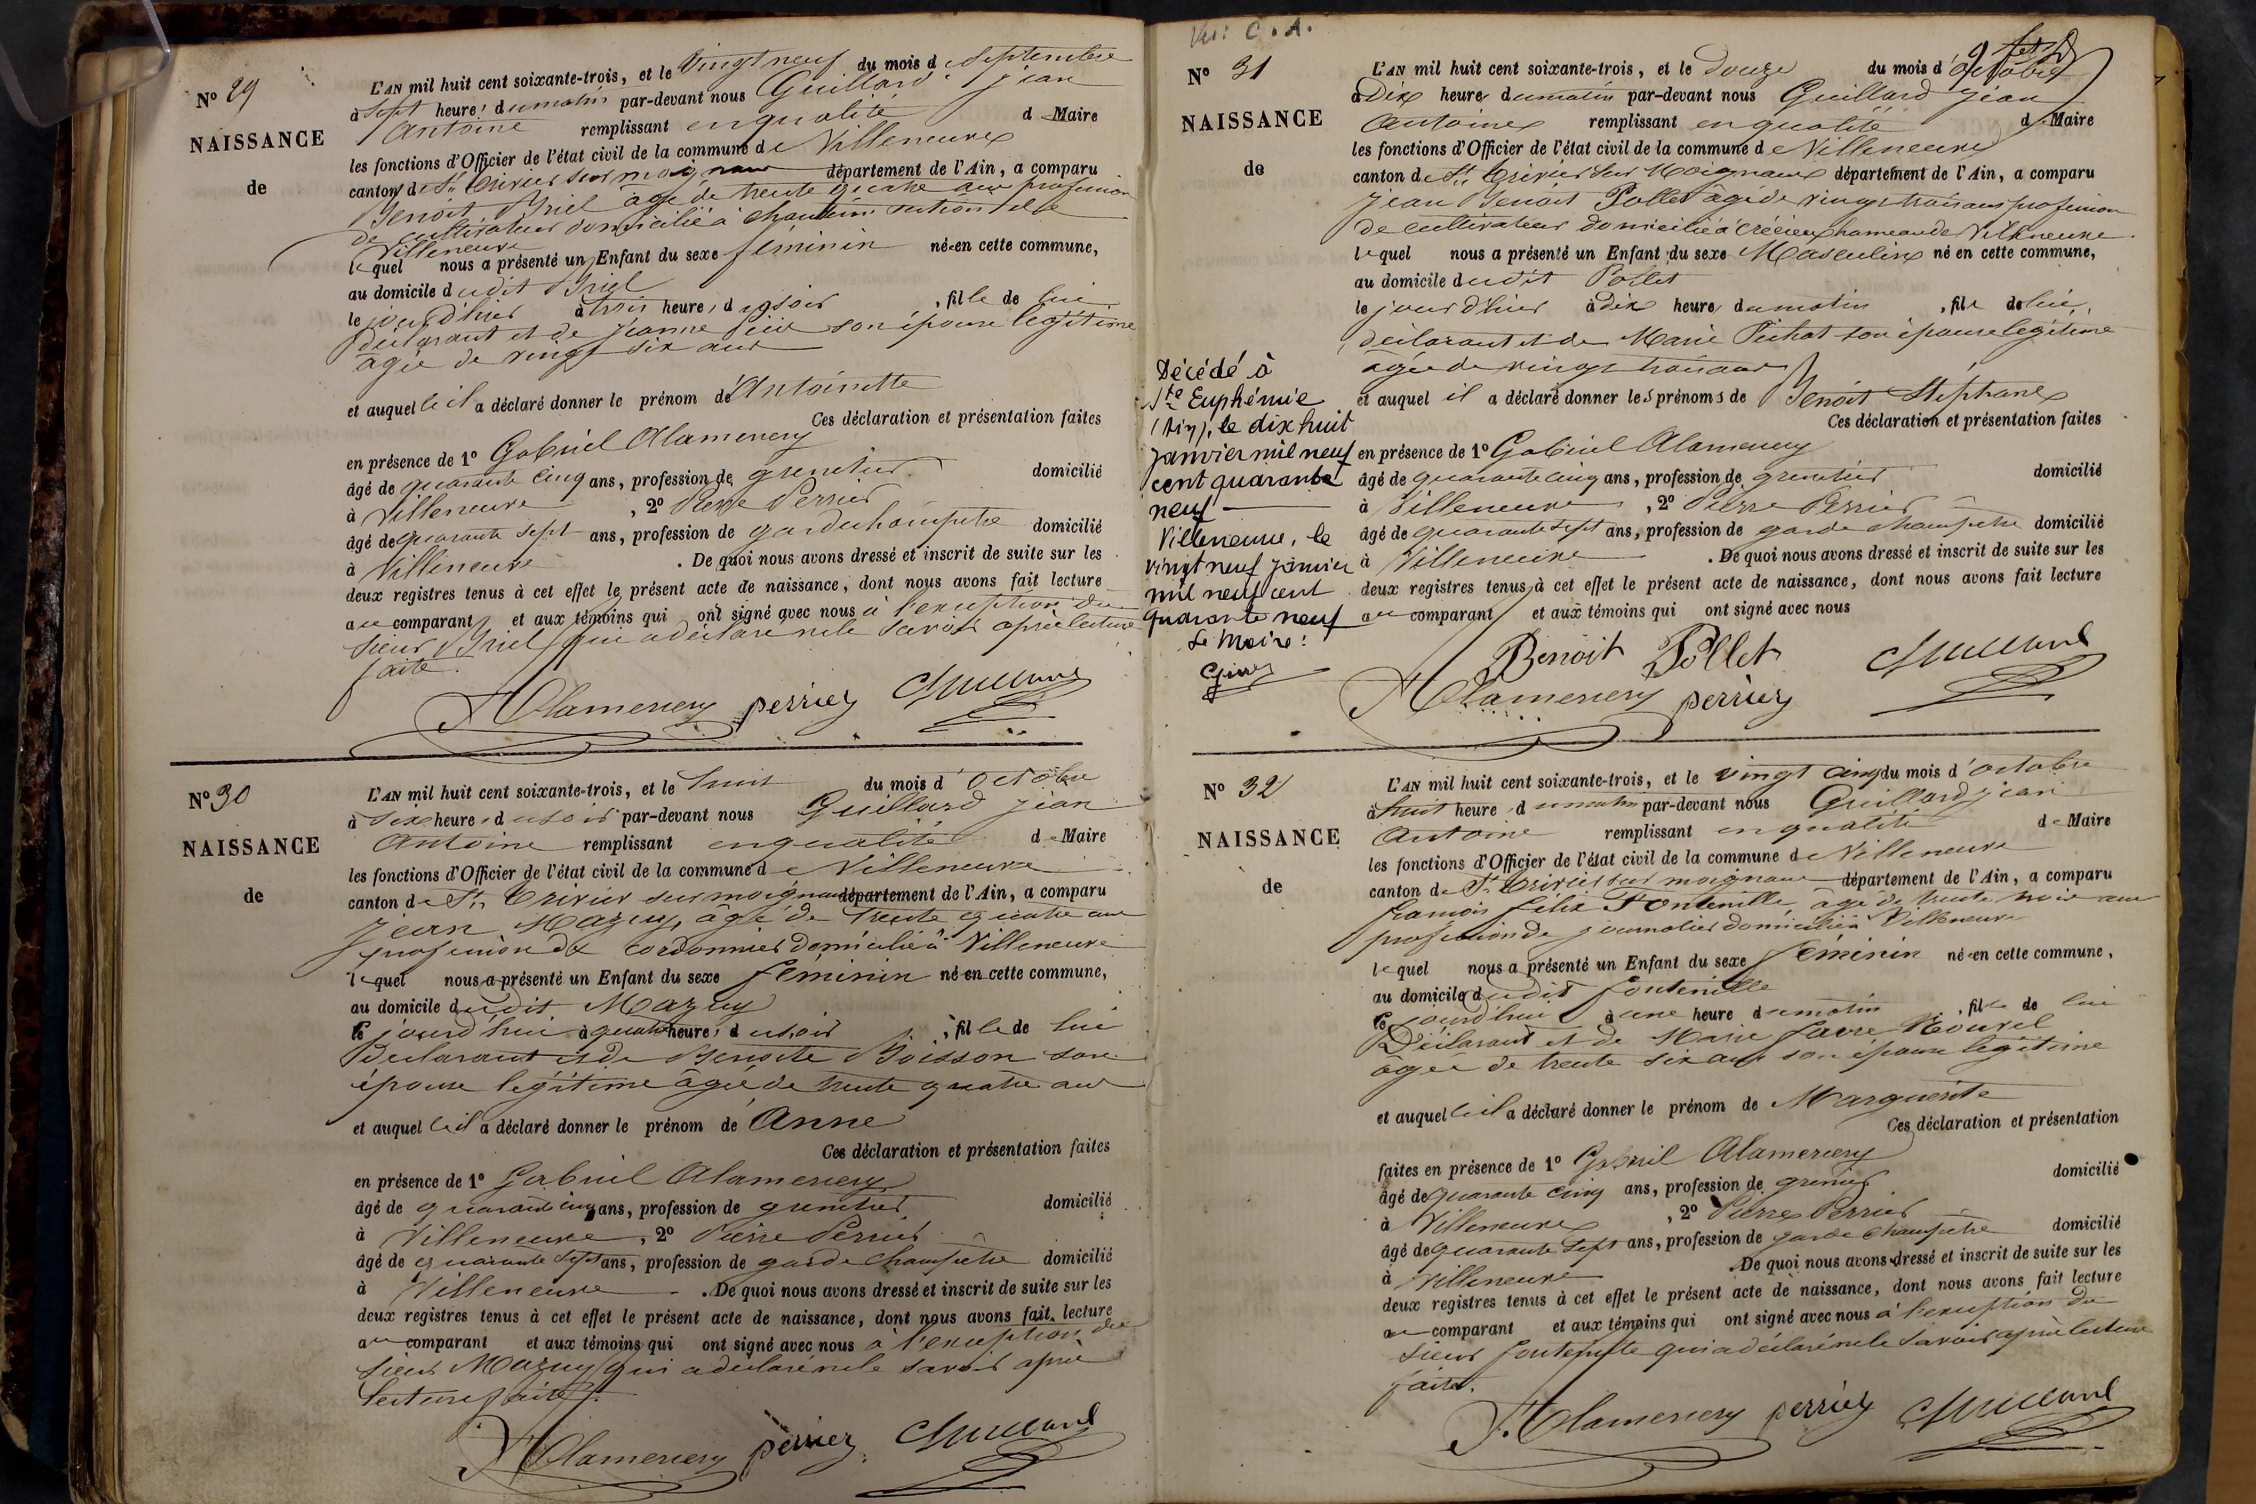 Nº 29
NAISSANCE
de
L'AN mil huit cent soixante-trois, et le Vingt neuf du mois de Septembre
à Sept heures du matin par-devant nous Guillard jean
Antoine remplissant en qualité de Maire
les fonctions d'Officier de l'état civil de la commune de Villeneuve
canton de St Trivier sur moignans département de l'Ain, a comparu
Benoit Briel âgé de trente quatre ans profession
de cultivateur domicilié à section de
Villeneuve
lequel nous a présenté un Enfant du sexe féminin née en cette commune,
au domicile dudit Briel
le jour d'hier à trois heures du soir, fille de lui
déclarant et de Jeanne son épouse légitime
âgée de vingt six ans
et auquel le il a déclaré donner le prénom de Antoinette
Ces déclaration et présentation faites
en présence de 1º Gabriel Alamercery
âgé de quarante cinq ans, profession de grenetier domicilié
à Villeneuve, 2º Pierre Perrier
âgé de quarante sept ans, profession de garde champêtre domicilié
à Villeneuve. De quoi nous avons dressé et inscrit de suite sur les
deux registres tenus à cet effet le présent acte de naissance, dont nous avons fait lecture
au comparant et aux témoins qui ont signé avec nous à l'exception du
sieur Briel qui a déclaré ne le savoir après lecture
faite.
Alamercery perrier Guillard
Nº 30
NAISSANCE
de
L'AN mil huit cent soixante-trois, et le huit du mois d'octobre
à six heures du soir par-devant nous Guillard jean
Antoine remplissant en qualité de Maire
les fonctions d'Officier de l'état civil de la commune de Villeneuve
canton de St Trivier sur moignans département de l'Ain, a comparu
Jean Mazuy, âgé de trente quatre ans
profession de cordonnier domicilié à Villeneuve
lequel nous a présenté un Enfant du sexe féminin né en cette commune,
au domicile dudit Mazuy
le jourd'hui à quatre heures du soir, fille de lui
Déclarant et de Benoite Boisson son
épouse légitime âgée de trente quatre ans
et auquel le il a déclaré donner le prénom de Anne
Ces déclaration et présentation faites
en présence de 1º Gabriel Alamercery
âgé de quarante cinq ans, profession de grenetier domicilié
à Villeneuve, 2º Pierre Perrier
âgé de quarante sept ans, profession de garde champêtre domicilié
à Villeneuve. De quoi nous avons dressé et inscrit de suite sur les
deux registres tenus à cet effet le présent acte de naissance, dont nous avons fait lecture
au comparant et aux témoins qui ont signé avec nous à l'exception du
sieur Mazuy qui a déclaré ne le savoir après
lecture faite.
Alamercery perrier Guillard
Vu: C. A.
Nº 31
NAISSANCE
de
L'AN mil huit cent soixante-trois, et le douze du mois d'octobre
à Dix heures du matin par-devant nous Guillard jean
Antoine remplissant en qualité de Maire
les fonctions d'Officier de l'état civil de la commune de Villeneuve
canton de St Trivier sur Moignans département de l'Ain, a comparu
Jean Benoit Pollet âgé de vingt trois ans profession
de cultivateur domicilié à hameau de Villeneuve
lequel nous a présenté un Enfant du sexe Masculin né en cette commune,
au domicile dudit Pollet
le jour d'hier à Dix heures du matin, fils de lui
déclarant et de Marie Pichat son épouse légitime
âgée de vingt trois ans
et auquel il a déclaré donner les prénoms de Benoit Stéphane
Ces déclaration et présentation faites
en présence de 1º Gabriel Alamercery
âgé de quarante cinq ans, profession de grenetier domicilié
à Villeneuve, 2º Pierre Perrier
âgé de quarante sept ans, profession de garde champêtre domicilié
à Villeneuve. De quoi nous avons dressé et inscrit de suite sur les
deux registres tenus à cet effet le présent acte de naissance, dont nous avons fait lecture
au comparant et aux témoins qui ont signé avec nous
Benoit Pollet Guillard
Alamercery perrier
Décédé à
Ste Euphémie
(Ain), le dix huit
janvier mil neuf
cent quarante
neuf
Villeneuve, le
vingt neuf janvier
mil neuf cent
quarante neuf
Le Maire:
Nº 32
NAISSANCE
de
L'AN mil huit cent soixante-trois, et le vingt cinq du mois d'octobre
à huit heures du matin par-devant nous Guillard jean
Antoine remplissant en qualité de Maire
les fonctions d'Officier de l'état civil de la commune de Villeneuve
canton de St Trivier sur moignans département de l'Ain, a comparu
françois félix Fontenille âgé de trente trois ans
profession de journalier domicilié à Villeneuve
lequel nous a présenté un Enfant du sexe féminin née en cette commune,
au domicile dudit fontenille
le jourd'hui à une heure du matin, fille de lui
Déclarant et de Marie favre
âgée de trente six ans son épouse légitime
et auquel le il a déclaré donner le prénom de Marguerite
Ces déclaration et présentation
faites en présence de 1º Gabriel Alamercery
âgé de quarante cinq ans, profession de domicilié
à Villeneuve, 2º Pierre Perrier
âgé de quarante sept ans, profession de garde champêtre domicilié
à Villeneuve. De quoi nous avons dressé et inscrit de suite sur les
deux registres tenus à cet effet le présent acte de naissance, dont nous avons fait lecture
au comparant et aux témoins qui ont signé avec nous à l'exception du
sieur fontenille qui a déclaré ne le savoir après lecture
faite.
Alamercery perrier Guillard